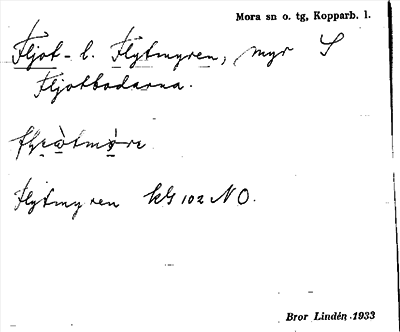 Mora sn o. tg, Kopparb. l.
Fljot- l. Flytmyren, myr S
Fljotbodarna.
Flytmyren KG 102 NO.
Bror Lindén 1933